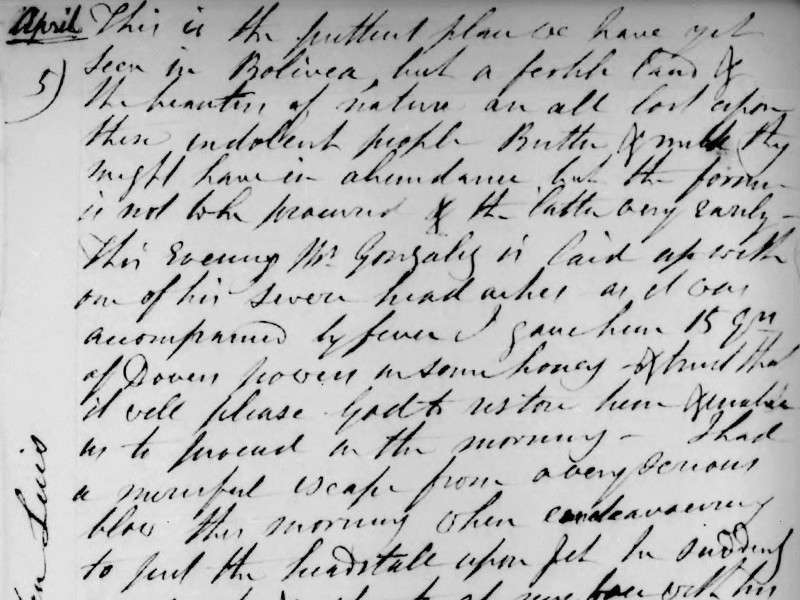 April This is the prettiest place we have yet
5) seen in Bolivea, but a fertile land &
the beauties of nature are all lost upon
these indolent people Butter & milk they
might have in abundance but the former
is not to be procured & the latter very rarely -
This Evening Mr. Gonzalez is laid up with
one of his severe head aches as it was
accompanied by fever I gave him 15 grs
of Dovers powers in some honey - & trust that
it will please God to restore him & enable
us to proceed in the morning - I had
a merciful escape from a very serious
blow this morning when endeavouring
to put the headstall upon Jet he suddenly
with his
Luis